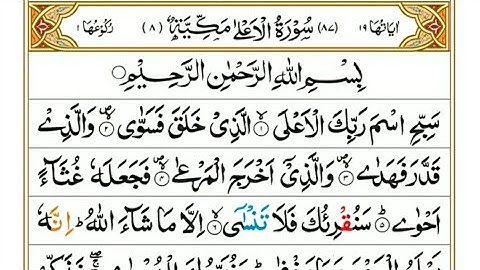 اٰیَاتُهَا ١٩ (٨٧) سُوْرَةُ الْاَعْلٰى مَكِّیَّةٌ (٨) رُكُوْعُهَا ١
بِسْمِ اللّٰهِ الرَّحْمٰنِ الرَّحِیْمِ
سَبِّحِ اسْمَ رَبِّكَ الْاَعْلَى ١ الَّذِیْ خَلَقَ فَسَوّٰى ٢ وَالَّذِیْ
قَدَّرَ فَهَدٰى ٣ وَالَّذِیْۤ اَخْرَجَ الْمَرْعٰى ٤ فَجَعَلَهٗ غُثَآءً
اَحْوٰى ٥ سَنُقْرِئُكَ فَلَا تَنْسٰۤى ٦ اِلَّا مَا شَآءَ اللّٰهُ ؕ اِنَّهٗ